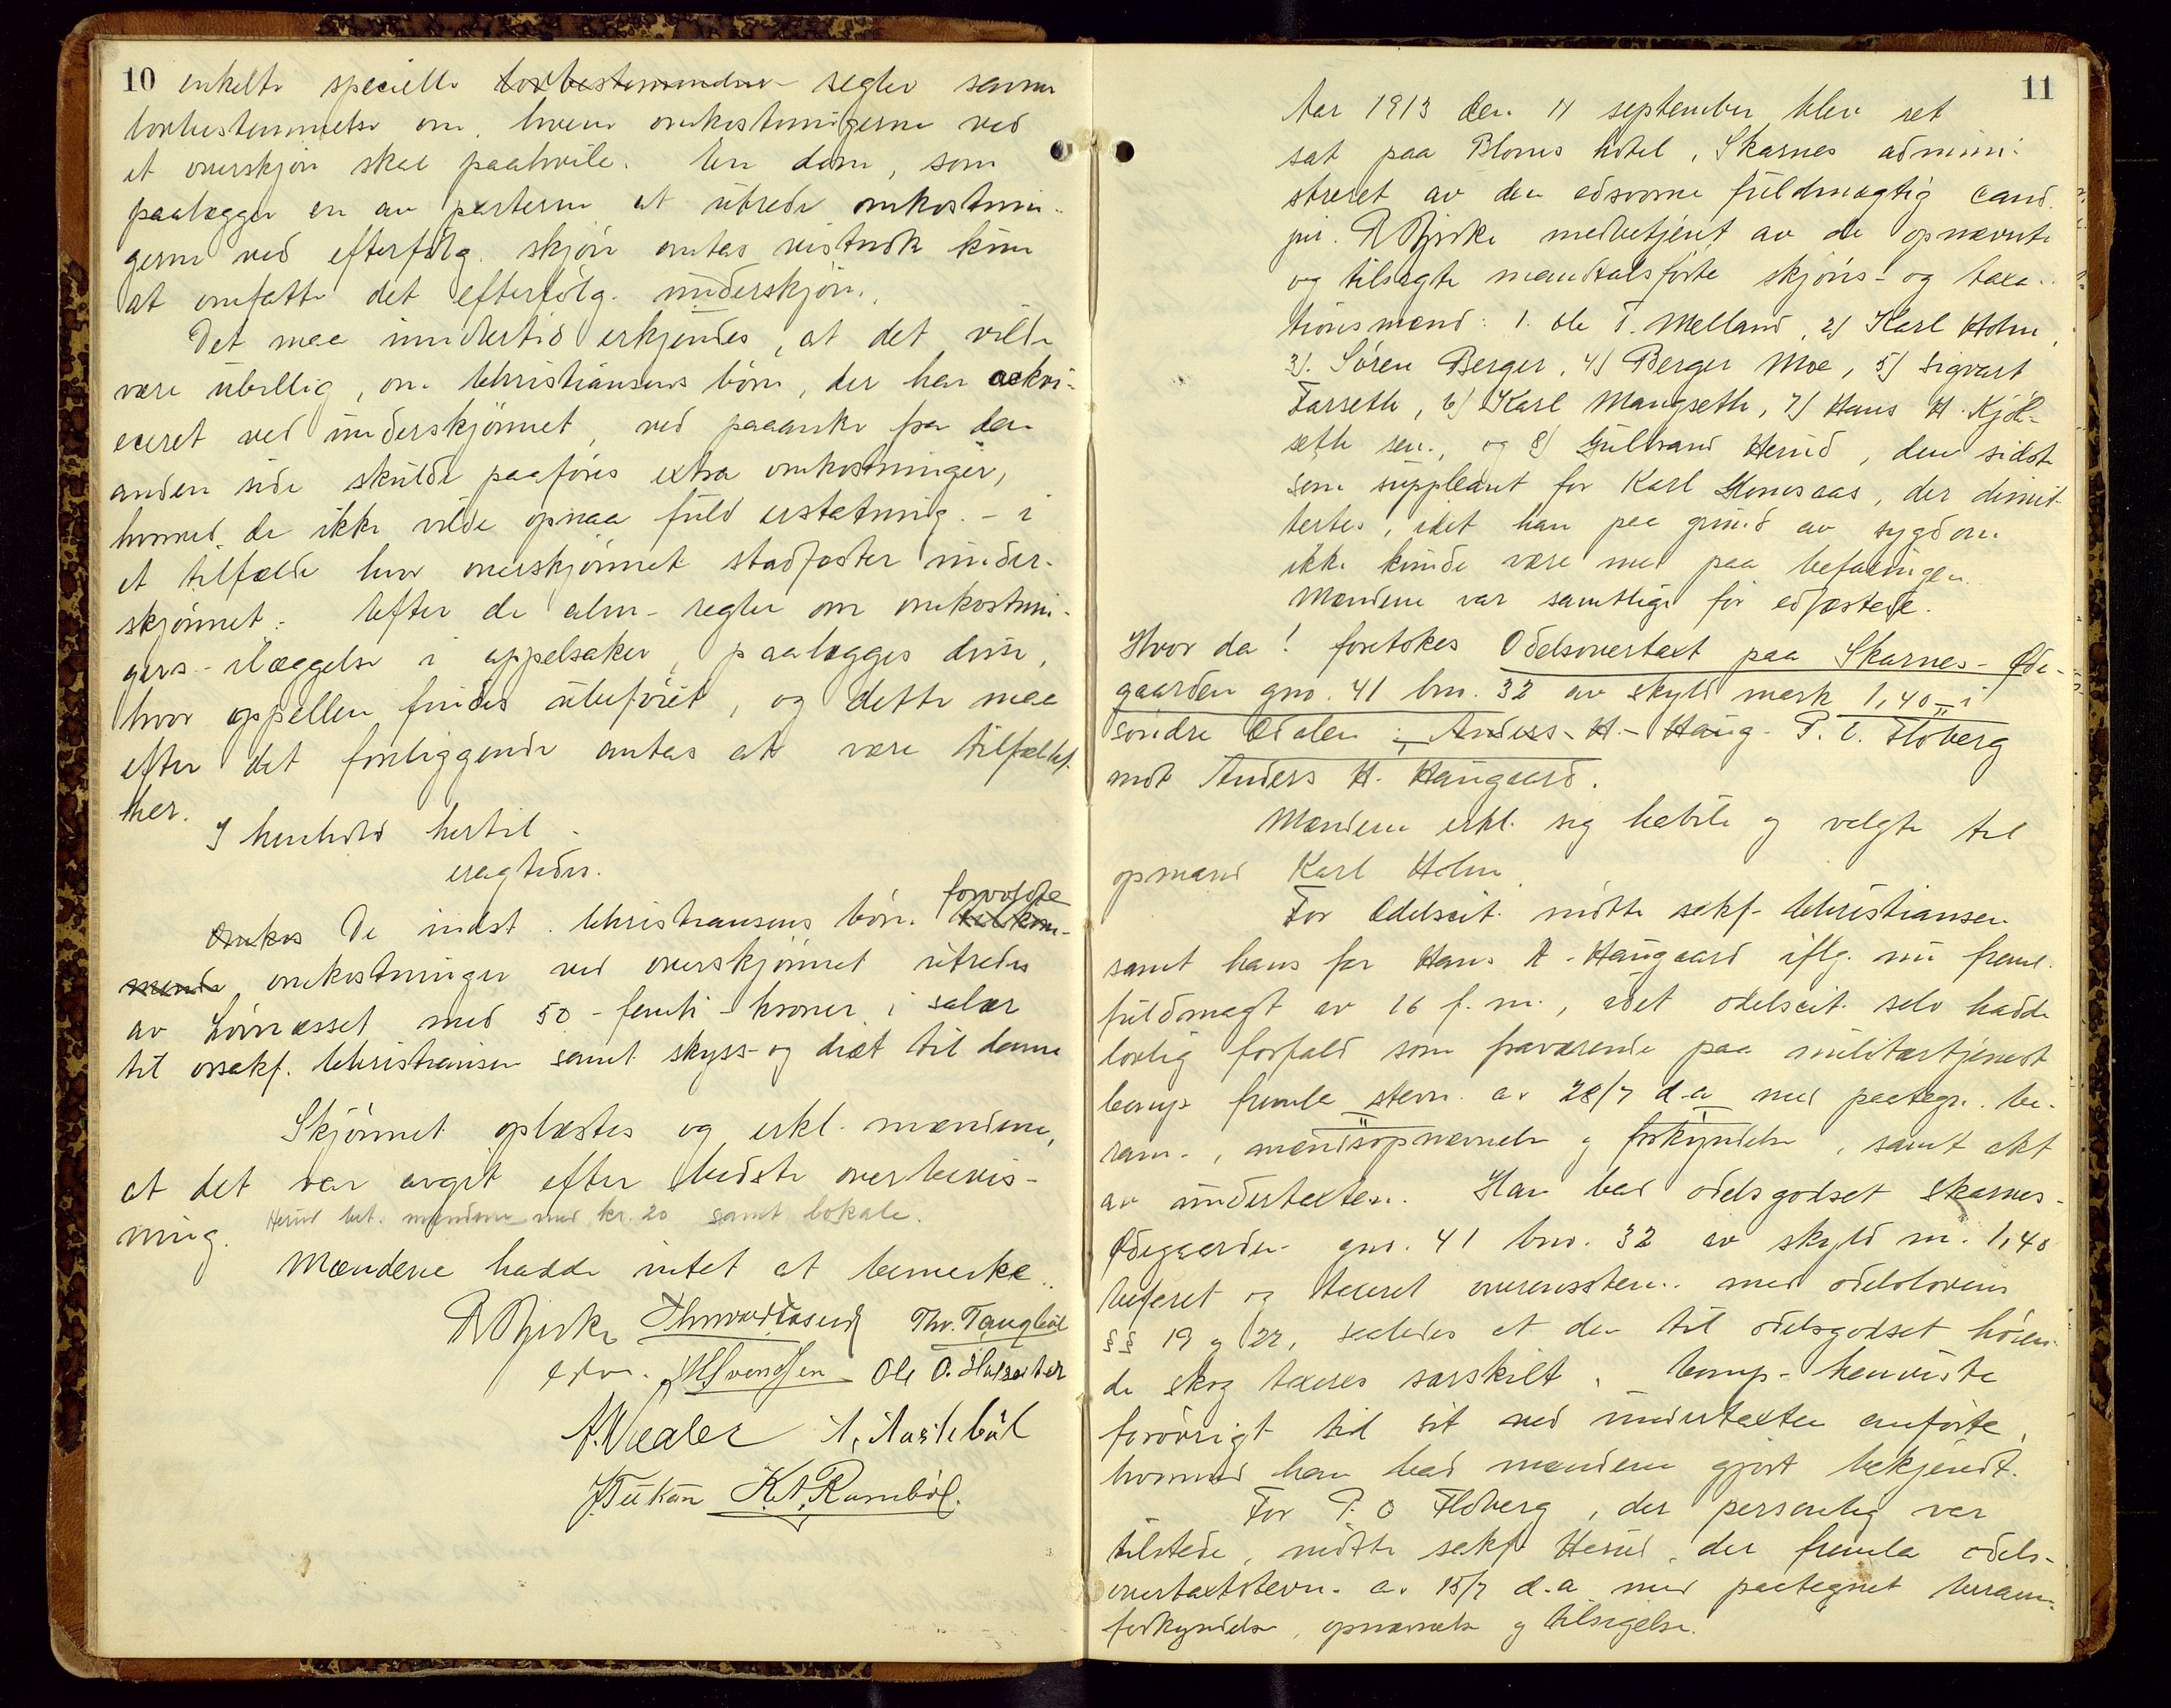 10 enkelte specielle lovbestemmelser regler savner
lovbestemmelse om, hvem omkostningerne ved
et overskjøn skal paahvile. En dom, som
paalægger en av parterne at utrede omkostnin-
gerne ved efterfølg. skjøn antas vistnok kun
at omfatte det efterfølg. underskjøn.
Det maa imidlertid erkjendes, at det vilde
være ubillig, om Christiansens børn, der har
ved underskjønnet, ved paaanke fra den
anden side skulde paaføres extra omkostninger,
hvorved de ikke vilde opnaa fuld erstatning - i
et tilfælde hvor overskjønnet stadfæster under-
skjønnet. Efter de alm. regler om omkostnin-
gers ilæggelse i appelsaker, paalægges disse,
hvor appellen findes ubeføiet, og dette maa
efter det foreliggende antas at være tilfældet
her.
I henhold hertil
eragtedes.
Omkos De indst. Christiansens børn forvoldte tilkom-
mende omkostninger ved overskjønnet utredes
av Lørnæsset med 50 - femti - kroner i salær
til ovsakf. Christiansen samt skyss- og diæt til denne
Skjønnet oplæstes og erkl. mændene,
at det var avgit efter bedste overbevis-
ning. Herud bet. mændene med kr. 20 samt lokale.
Mændene hadde intet at bemerke.
R Bjerke Thorvald Thv. Tangbøl
edv. Svendsen Ole O. Hulsæter
A. Vealer A. Aastebøl
K.A. Rambøl.
11
Aar 1913 den 11 september blev ret
sat paa Bloms hotel, Skarnes admini-
streret av den edsvorne fuldmægtig cand.
jur. R Bjerke medbetjent av de opnævnte
og tilsagte mandtalsførte skjøns- og taxa-
tionsmænd: 1. Ole T. Melland, 2) Karl Holm,
3). Søren Berger, 4) Berger Moe, 5) Sigvart
Farseth, 6) Karl Mangseth, 7) Hans H. Kjøl-
seth sen., og 8) Gulbrand Herud, den sidste
som suppleant for Karl Stensaas, der dimit-
tertes, idet han paa grund av sygdom
ikke kunde være med paa befaringen.
Mændene var samtlige før edfæstede.
Hvor da! foretokes Odelsovertaxt paa Skarnes-Øde-
gaarden gno. 41 bno. 32 av skyld mark 1,40 i
søndre Odalen; Anders H. Haug P. O. Floberg
mot Anders H. Haugaard.
Mændene erkl. sig habile og valgte til
opmand Karl Holm.
For Odelscit. møtte sakf. Christiansen
samt hans far Hans A. Haugaard iflg. nu freml.
fuldmagt av 16 f.m., idet odelscit. selv hadde
lovlig forfald som fraværende paa militærtjenest
Comp. fremla stevn. av 28/7 d.a med paategn. be-
ram., mændsopnævnelse og forkyndelse, samt akt
av undertaxten. Han bad odelsgodset Skarnes-
Ødegaarden gno. 41 bno. 32 av skyld m. 1,40
befaret og taxeret overensstem. med odelslovens
§§ 19 og 22, saaledes at den til odelsgodset høren-
de skog taxeres særskilt. Comp. henviste
forøvrigt til sit ved undertaxten anførte,
hvormed han bad mændene gjort bekjendt.
For P. O Floberg, der personlig var
tilstede, møtte sakf. Herud, der fremla odels-
overtaxtstevn. av 15/7 d.a med paategnet beram.
forkyndelse, opnævnelse og tilsigelse.